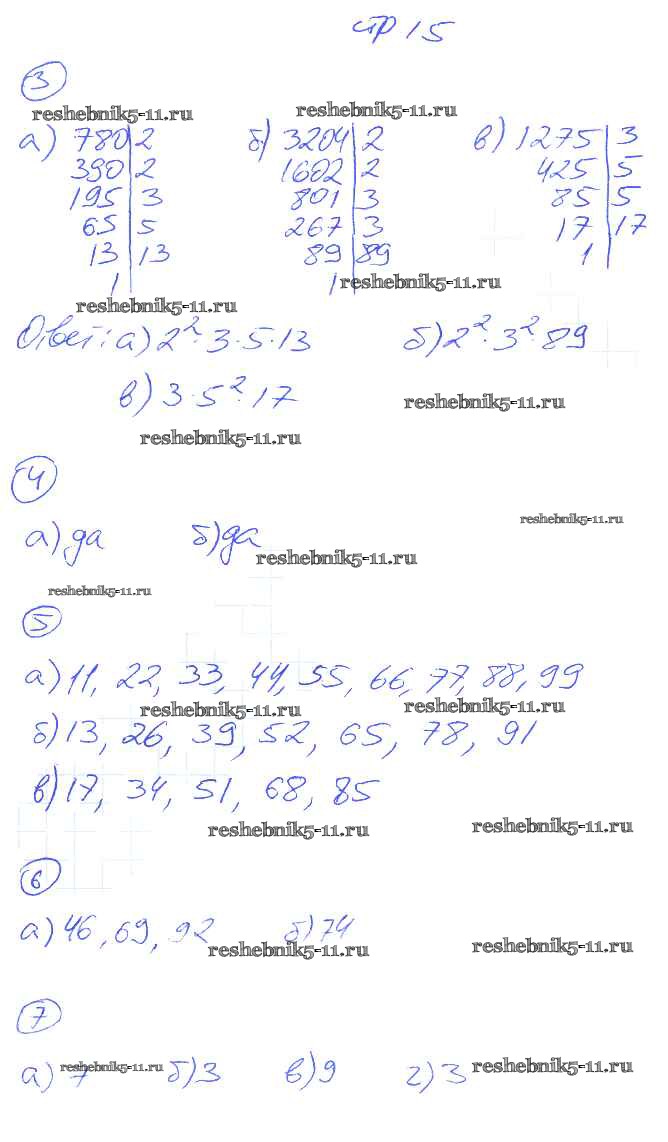 стр 15
3
reshebnik5-11.ru reshebnik5-11.ru
а) 780|2 б) 3204|2 в) 1275|3
390|2 1602|2 425|5
195|3 801|3 85|5
65|5 267|3 17|17
13|13 89|89 1|
1| 1| reshebnik5-11.ru
reshebnik5-11.ru
Ответ: а) 2²·3·5·13 б) 2²·3²·89
в) 3·5²·17 reshebnik5-11.ru
reshebnik5-11.ru
4
reshebnik5-11.ru
а) да б) да
reshebnik5-11.ru
reshebnik5-11.ru
5
а) 11, 22, 33, 44, 55, 66, 77, 88, 99
reshebnik5-11.ru reshebnik5-11.ru
б) 13, 26, 39, 52, 65, 78, 91
в) 17, 34, 51, 68, 85
reshebnik5-11.ru reshebnik5-11.ru
6
а) 46, 69, 92 б) 74
reshebnik5-11.ru reshebnik5-11.ru
7
reshebnik5-11.ru reshebnik5-11.ru
а) 7 б) 3 в) 9 г) 3